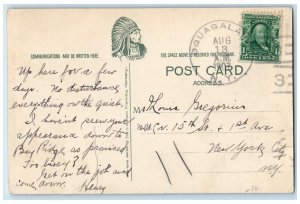 COMMUNICATIONS MAY BE WRITTEN HERE.
THE SPACE ABOVE IS RESERVED FOR POSTMARK.
POST CARD
ADDRESS
AUG
Up here for a few
days. No disturbance
everything on the quiet.
I haven't seen your
appearance down to
Bay Ridge as promised
Too busy?
Get on the job and
come down. Henry
Louis Gregorius
15th St. & 1st Ave
New York City
NY